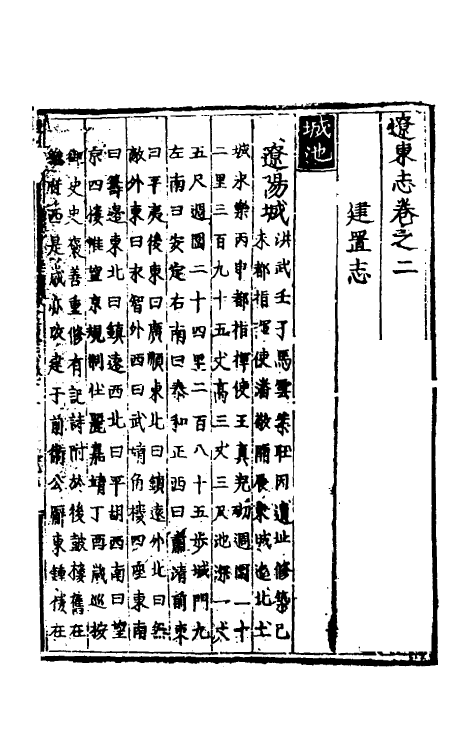 遼東志卷之二
建置志
城池
遼陽城洪武壬子馬雲葉旺因遺址修築己
未都指揮使潘敬開展東城迤北土
城永樂丙申都指揮使王真完砌週圍一十
二里三百九十五丈高三丈三尺池深一丈
五尺週圍二十四里二百八十五步城門九
左南曰安定右南曰泰和正西曰肅清前東
曰平夷後東曰廣順東北曰鎮遠外北曰無
敵外東曰永智外西曰武靖角樓四座東南
曰籌邊東北曰鎮遠西北曰平胡西南曰望
京四樓惟望京規制壯麗嘉靖丁酉歲巡按
御史史褒善重修有記詩附於後鼓樓舊在
府西是歲亦改建于前衛公廨東鍾樓在